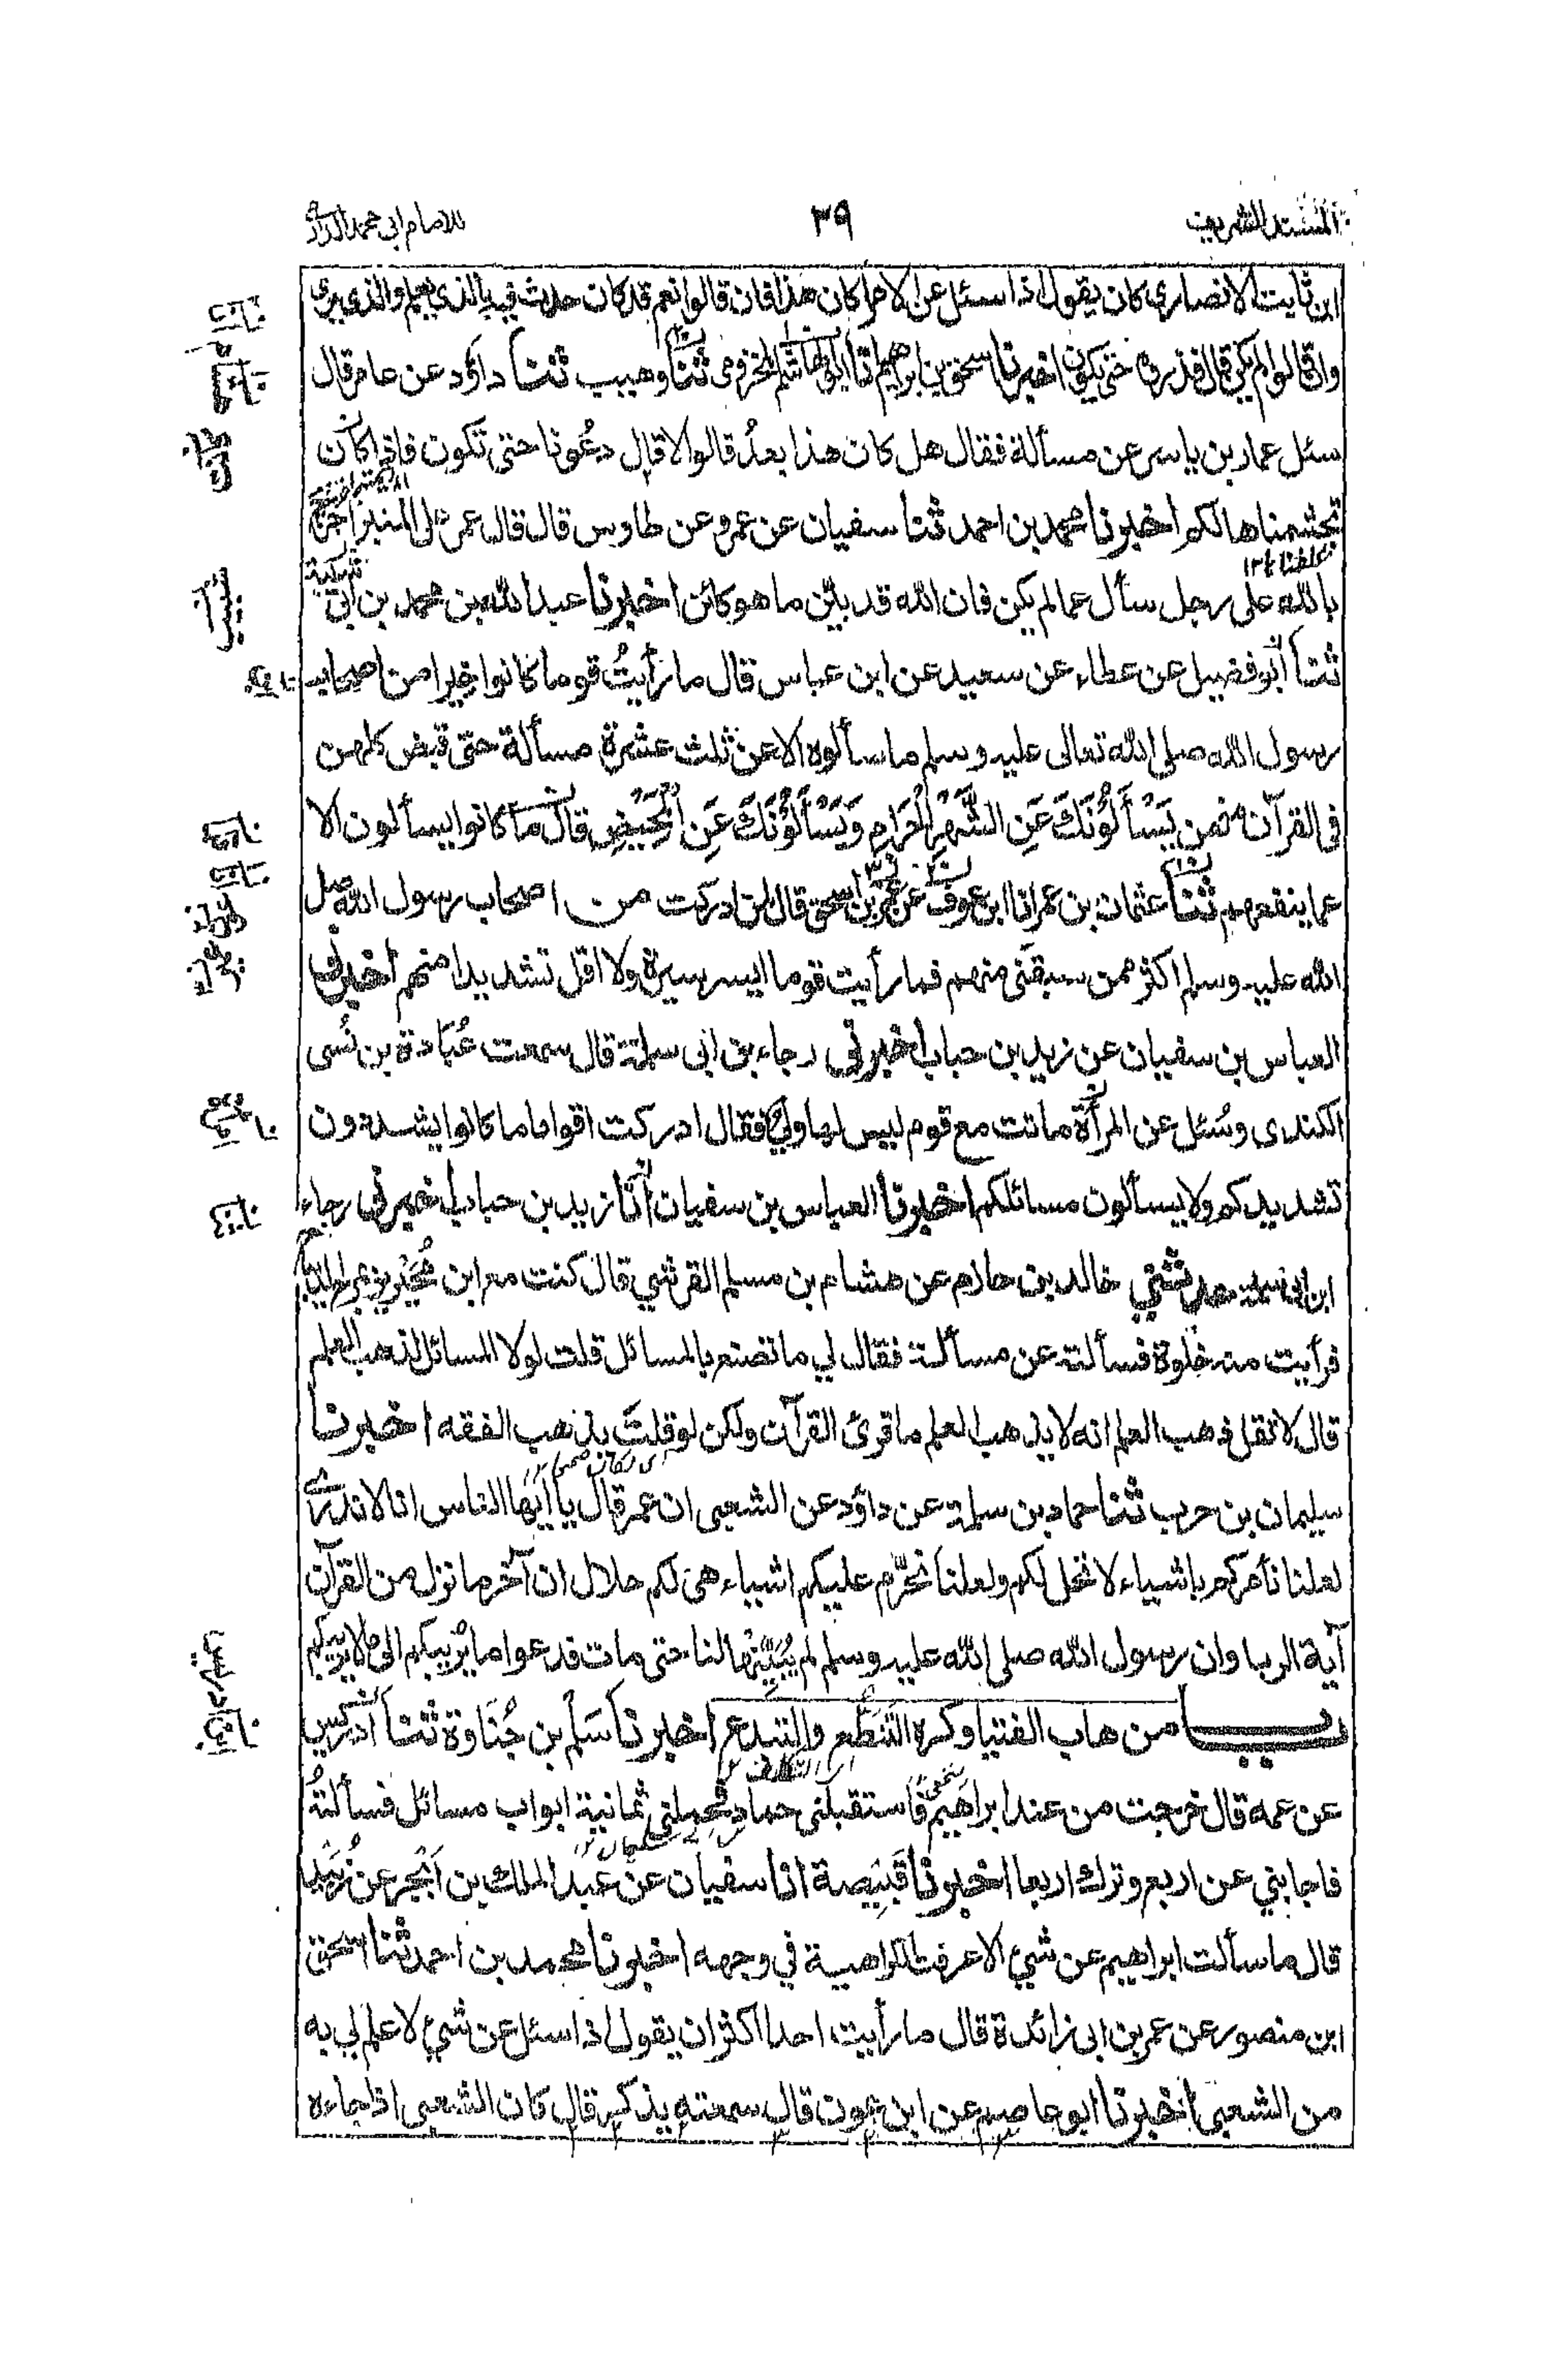 المسند الشريف
٣٩
للامام ابی محمد الدارمی
ابن ثابت الانصاری کان یقول اذا سئل عن الامر اکان هذا فان قالوا نعم قد کان حدث فیه بالذی یعلم والذی یری
وان قالوا لم یکن قال فذروه حتی یکون اخبرنا اسحق بن ابراهیم انا ابو هاشم المخزومی ثنا وهیب ثنا داؤد عن عامر قال
سئل عمار بن یاسر عن مسألة فقال هل کان هذا بعدُ قالوا لا قال دعُونا حتی تکون فاذا کان
تجشمناها لکم اخبرنا محمد بن احمد ثنا سفیان عن عمرو عن طاوس قال قال عمر علی المنبر احرّج
بالله علی رجل سأل عما لم یکن فان الله قد بیّن ما هو کائن اخبرنا عبد الله بن محمد بن ابی شیبة
ثنا ابو فضیل عن عطاء عن سعید عن ابن عباس قال ما رأیتُ قوما کانوا خیرا من اصحاب
رسول الله صلی الله تعالی علیه وسلم ما سألوه الا عن ثلث عشرة مسألة حتی قبض کلهن
فی القرآن منهن یَسْأَلُوْنَكَ عَنِ الشَّهْرِ الْحَرَامِ وَیَسْأَلُوْنَكَ عَنِ الْمَحِیْضِ قال ما کانوا یسألون الا
عما ینفعهم ثنا عثمان بن عمر انا ابن عون عن عمیر بن اسحق قال لمن ادرکت من اصحاب رسول الله صلی
الله علیه وسلم اکثر ممن سبقنی منهم فما رأیت قوما ایسر سیرة ولا اقل تشدیدا منهم اخبرنی
العباس بن سفیان عن زید بن حباب اخبرنی رجاء بن ابی سلمة قال سمعت عُبَادة بن نُسی
الکندی وسُئل عن المرأة ماتت مع قوم لیس لها ولیٌّ فقال ادرکت اقواما ما کانوا یشددون
تشدیدکم ولا یسألون مسائلکم اخبرنا العباس بن سفیان انا زید بن حباب اخبرنی رجاء
ابن ابی سلمة حدثنی خالد بن حازم عن هشام بن مسلم القرشی قال کنت مع ابن مُحَیریز
فرأیت منه خلوة فسألته عن مسألة فقال لی ما تصنع بالمسائل قلت لولا المسائل لذهب العلم
قال لا تقل ذهب العلم انه لا یذهب العلم ما قرئ القرآن ولکن لو قلتَ یذهب الفقه اخبرنا
سلیمان بن حرب ثنا حماد بن سلمة عن داؤد عن الشعبی ان عمر قال یا ایها الناس انا لا ندری
لعلنا نأمرکم باشیاء لا تحل لکم ولعلنا نحرّم علیکم اشیاء هی لکم حلال ان آخر ما نزل من القرآن
آیة الربا وان رسول الله صلی الله علیه وسلم لم یُبَیّنها لنا حتی مات فدعوا ما یریبکم الی ما لا یریبکم
باب من هاب الفتیا وکره التنطُّع والتبدع اخبرنا سَلْم بن جُنَادة ثنا ابن ادریس
عن عمه قال خرجت من عند ابراهیم فاستقبلنی حماد فحملنی ثمانیة ابواب مسائل فسألتُهُ
فاجابنی عن اربع وترك اربعا اخبرنا قَبِیصة انا سفیان عن عبد الملك بن اَبْجر عن زُبَید
قال ما سألت ابراهیم عن شیٔ الا عرفت الکراهیة فی وجهه اخبرنا محمد بن احمد ثنا اسحق
ابن منصور عن عمر بن ابی زائدة قال ما رأیت احدا اکثر ان یقول اذا سئل عن شیٔ لا علم لی به
من الشعبی اخبرنا ابو عاصم عن ابن عون قال سمعته یذکر قال کان الشعبی اذا جاءه